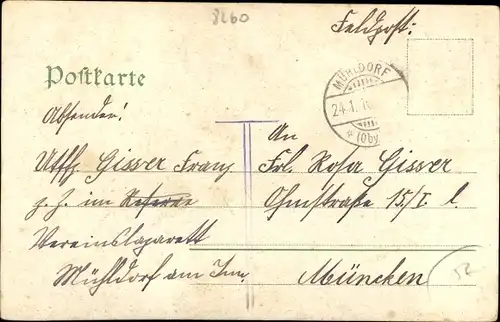 8260
Feldpost:
Postkarte
MÜHLDORF
24.1.
(Oby
Absender:
Utffz. Gisser Franz
z. Z. im Reserve
Vereinslazarett
Mühldorf am Inn.
An
Frl. Rosa Gisser
Ohmstraße 15/I. l.
München
52